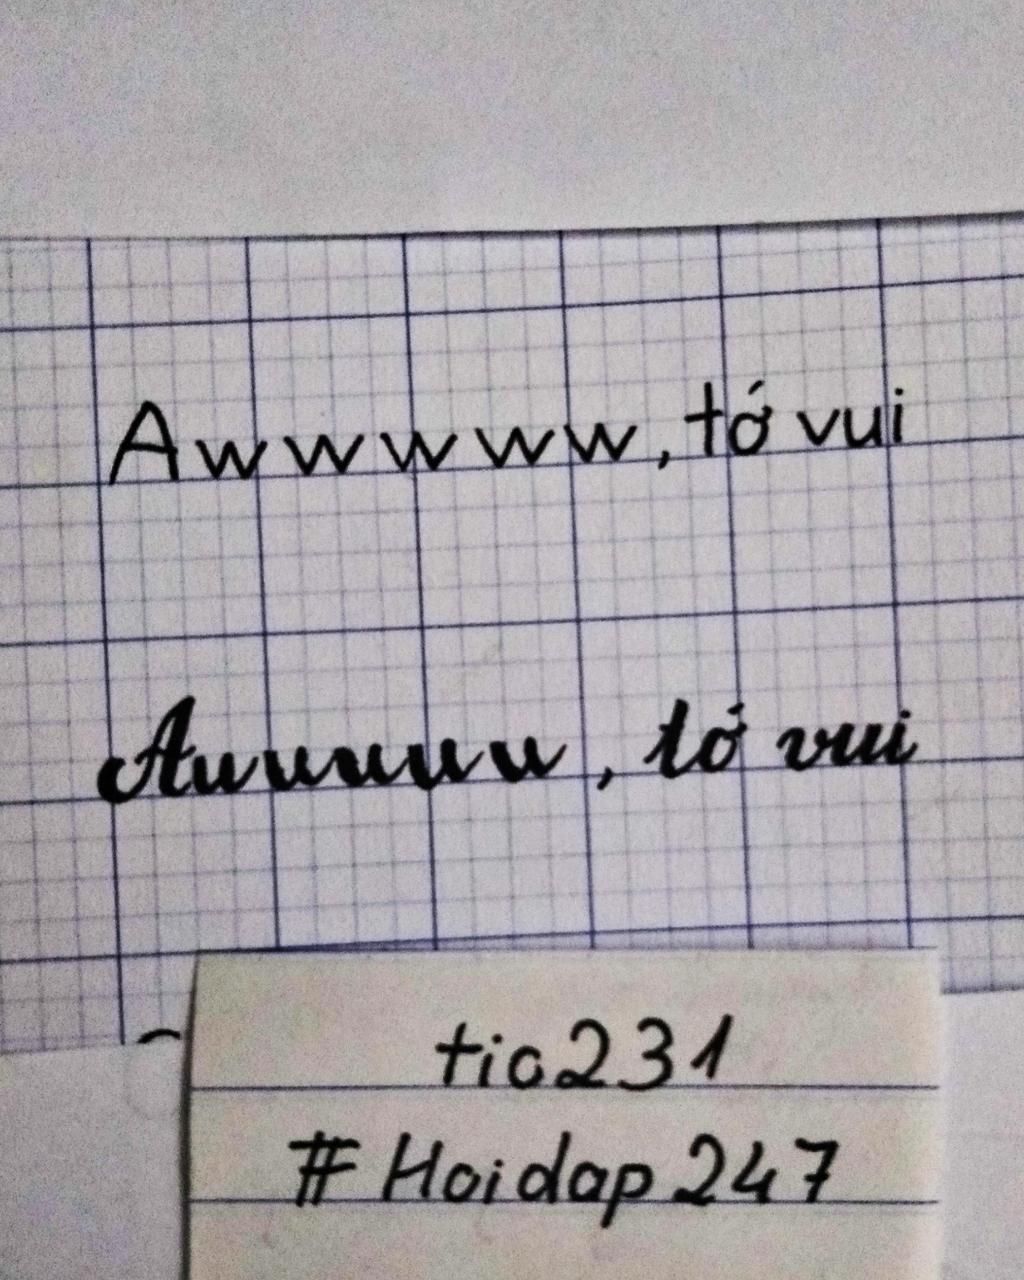 Awwwww, tớ vui
Awwwww, tớ vui
tic231
#Hoidap247